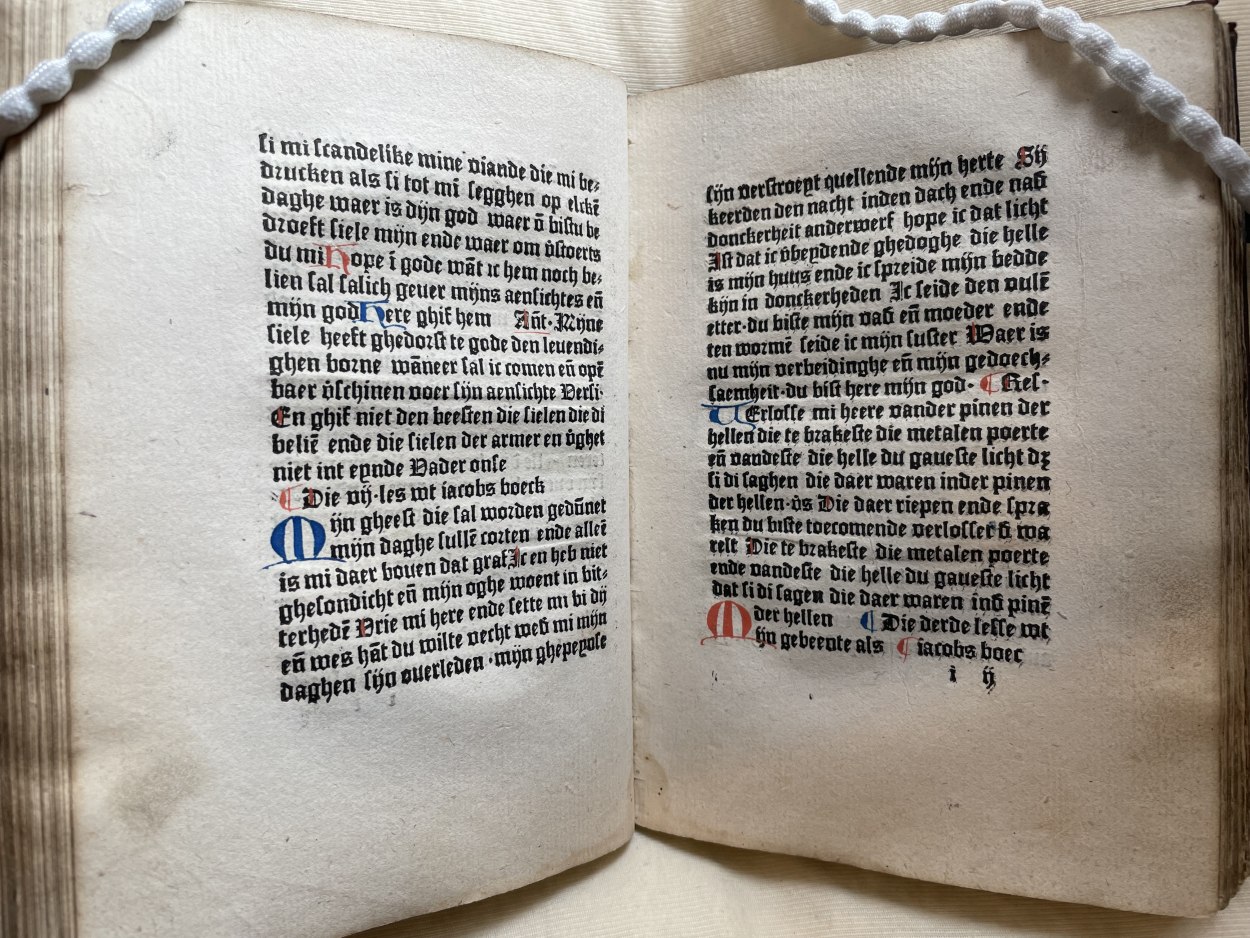 si mi scandelike mine viande die mi be⸗
drucken als si tot mi segghen op elckē
daghe waer is dijn god waer ō bistu be
droeft siele mijn ende waer om v̄stoerts
du mi Hope ī gode wāt ic hem noch be⸗
lien sal salich geuer mijns aensichtes en̄
mijn god Here ghif hem An̄t· Mijne
siele heeft ghedorst te gode den leuendi⸗
ghen borne wāneer sal ic comen en̄ opē
baer v̄schinen voer sijn aensichte Versi·
En ghif niet den beesten die sielen die di
beliē ende die sielen der armer en v̄ghet
niet int eynde Vader onse
¶ Die vij· les wt iacobs boeck
Mijn gheest die sal worden gedūnet
mijn daghe sullē corten ende alleē
is mi daer bouen dat graf Ic en heb niet
ghesondicht en̄ mijn oghe woent in bit⸗
terhedē Vrie mi here ende sette mi bi dij
en̄ wes hāt du wilte vecht wed̄ mi mijn
daghen sijn ouerleden · mijn ghepeynse
sijn verstroeyt quellende mijn herte Sij
keerden den nacht inden dach ende nad̄
donckerheit anderwerf hope ic dat licht
Ist dat ic v̄beydende ghedoghe die helle
is mijn huus ende ic spreide mijn bedde
kijn in donckerheden Ic seide den vulē
etter· du biste mijn vad̄ en̄ moeder ende
ten wormē seide ic mijn suster Waer is
nu mijn verbeidinghe en̄ mijn gedoech⸗
saemheit· du bist here mijn god· ¶ Res·
VErlosse mi heere vander pinen der
hellen die te brakeste die metalen poerte
en̄ vandeste die helle du gaueste licht dꝫ
si di saghen die daer waren inder pinen
der hellen· v̄s Die daer riepen ende spra
ken du biste toecomende verlosser d̄ wa
relt Die te brakeste die metalen poerte
ende vandeste die helle du gaueste licht
dat si di sagen die daer waren ind̄ pinē
der hellen ¶ Die derde lesse wt
Mijn gebeente als ¶ iacobs boec
i ij